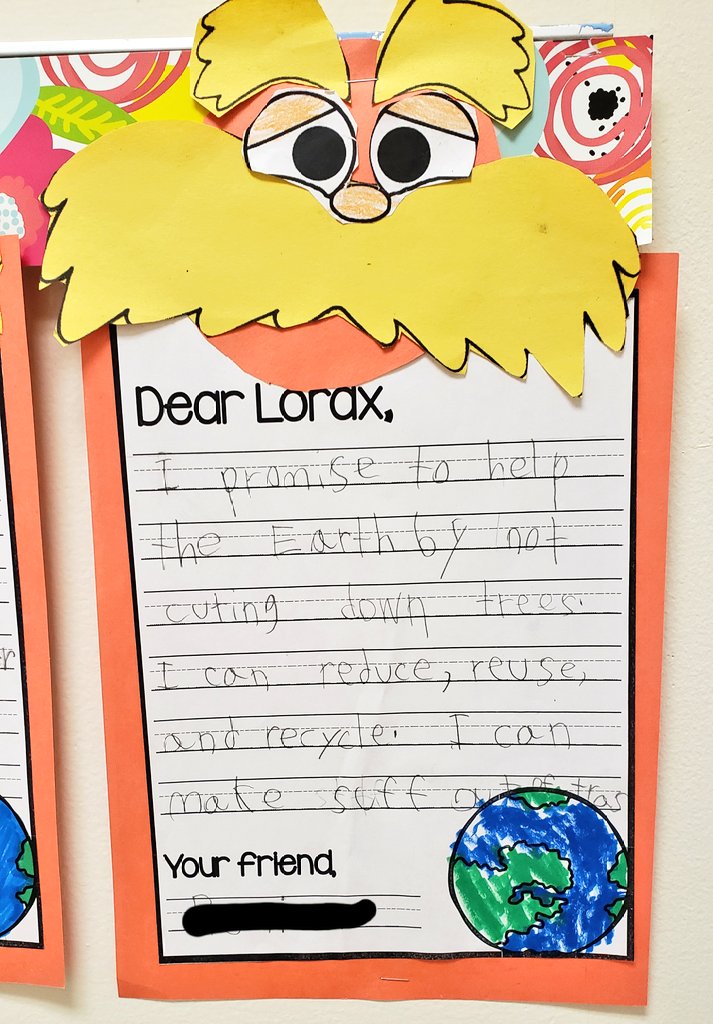 Dear Lorax,
I promise to help
the Earth by not
cuting down trees.
I can reduce, reuse,
and recycle. I can
make suff out of tras
Your friend,